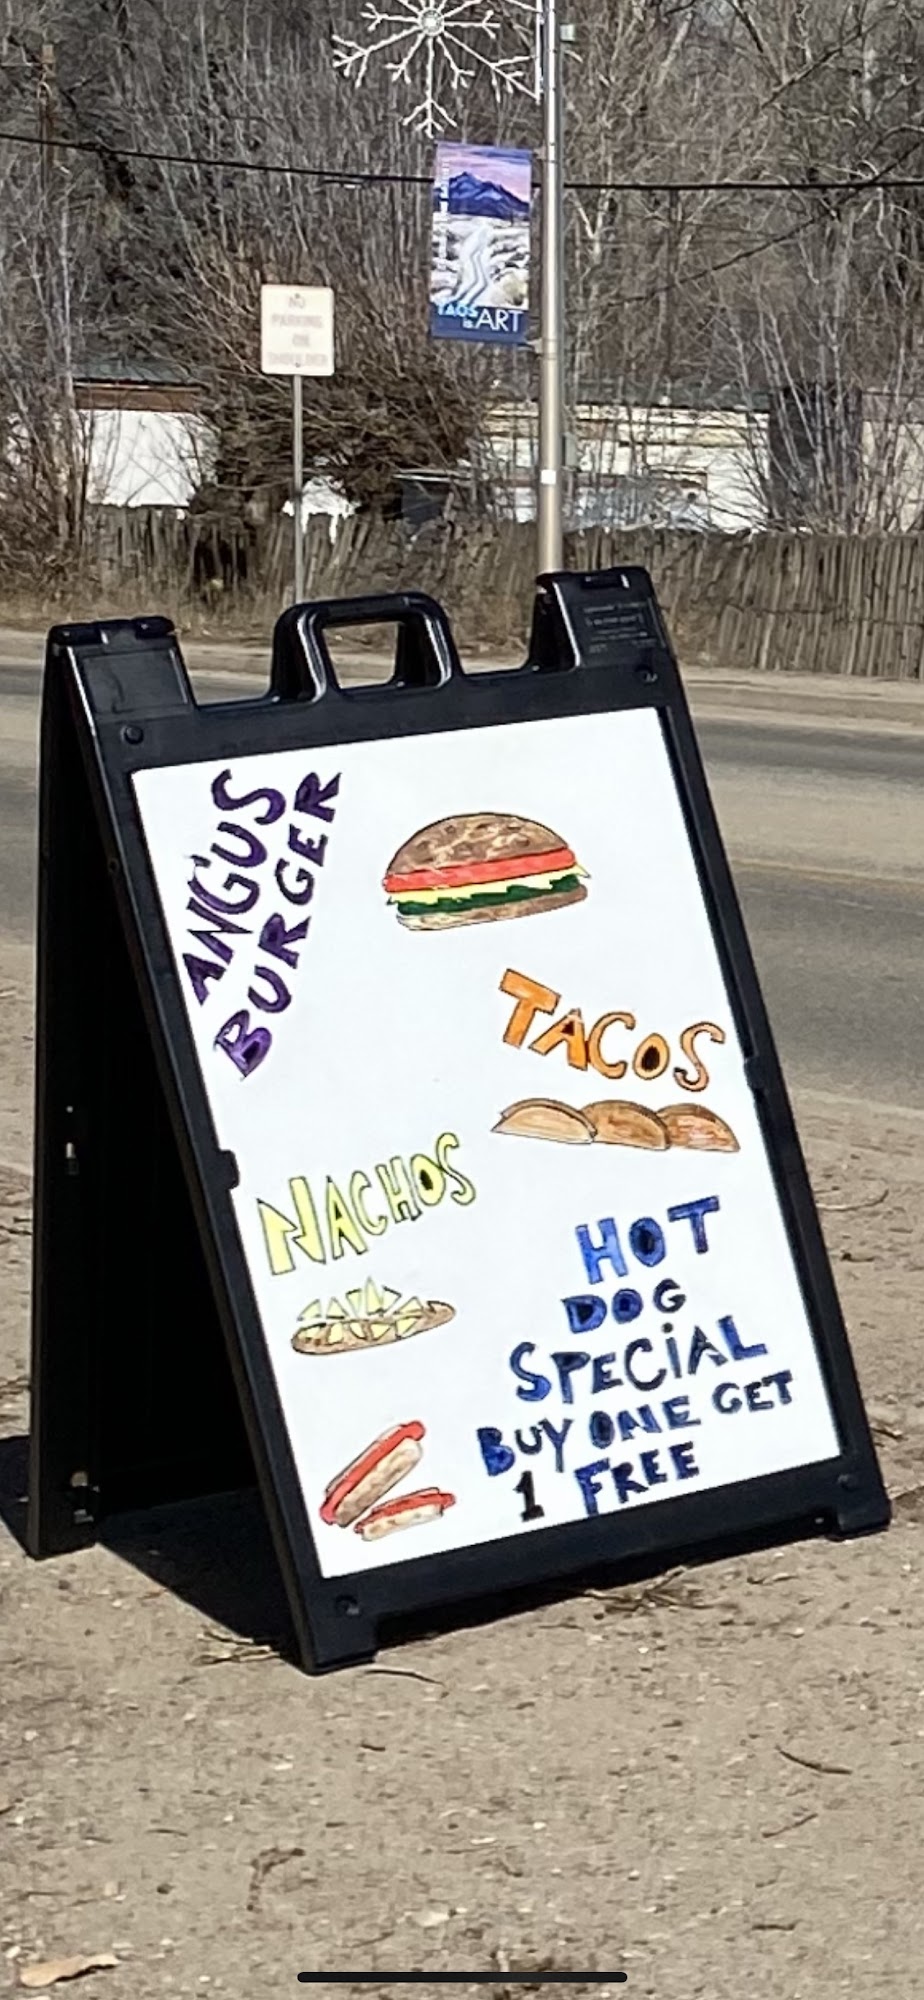 NO
PARKING
ON
SHOULDER
TAOS
is ART
ANGUS
BURGER
TACOS
NACHOS
HOT
DOG
SPECiAL
BUY ONE GET
1 FREE